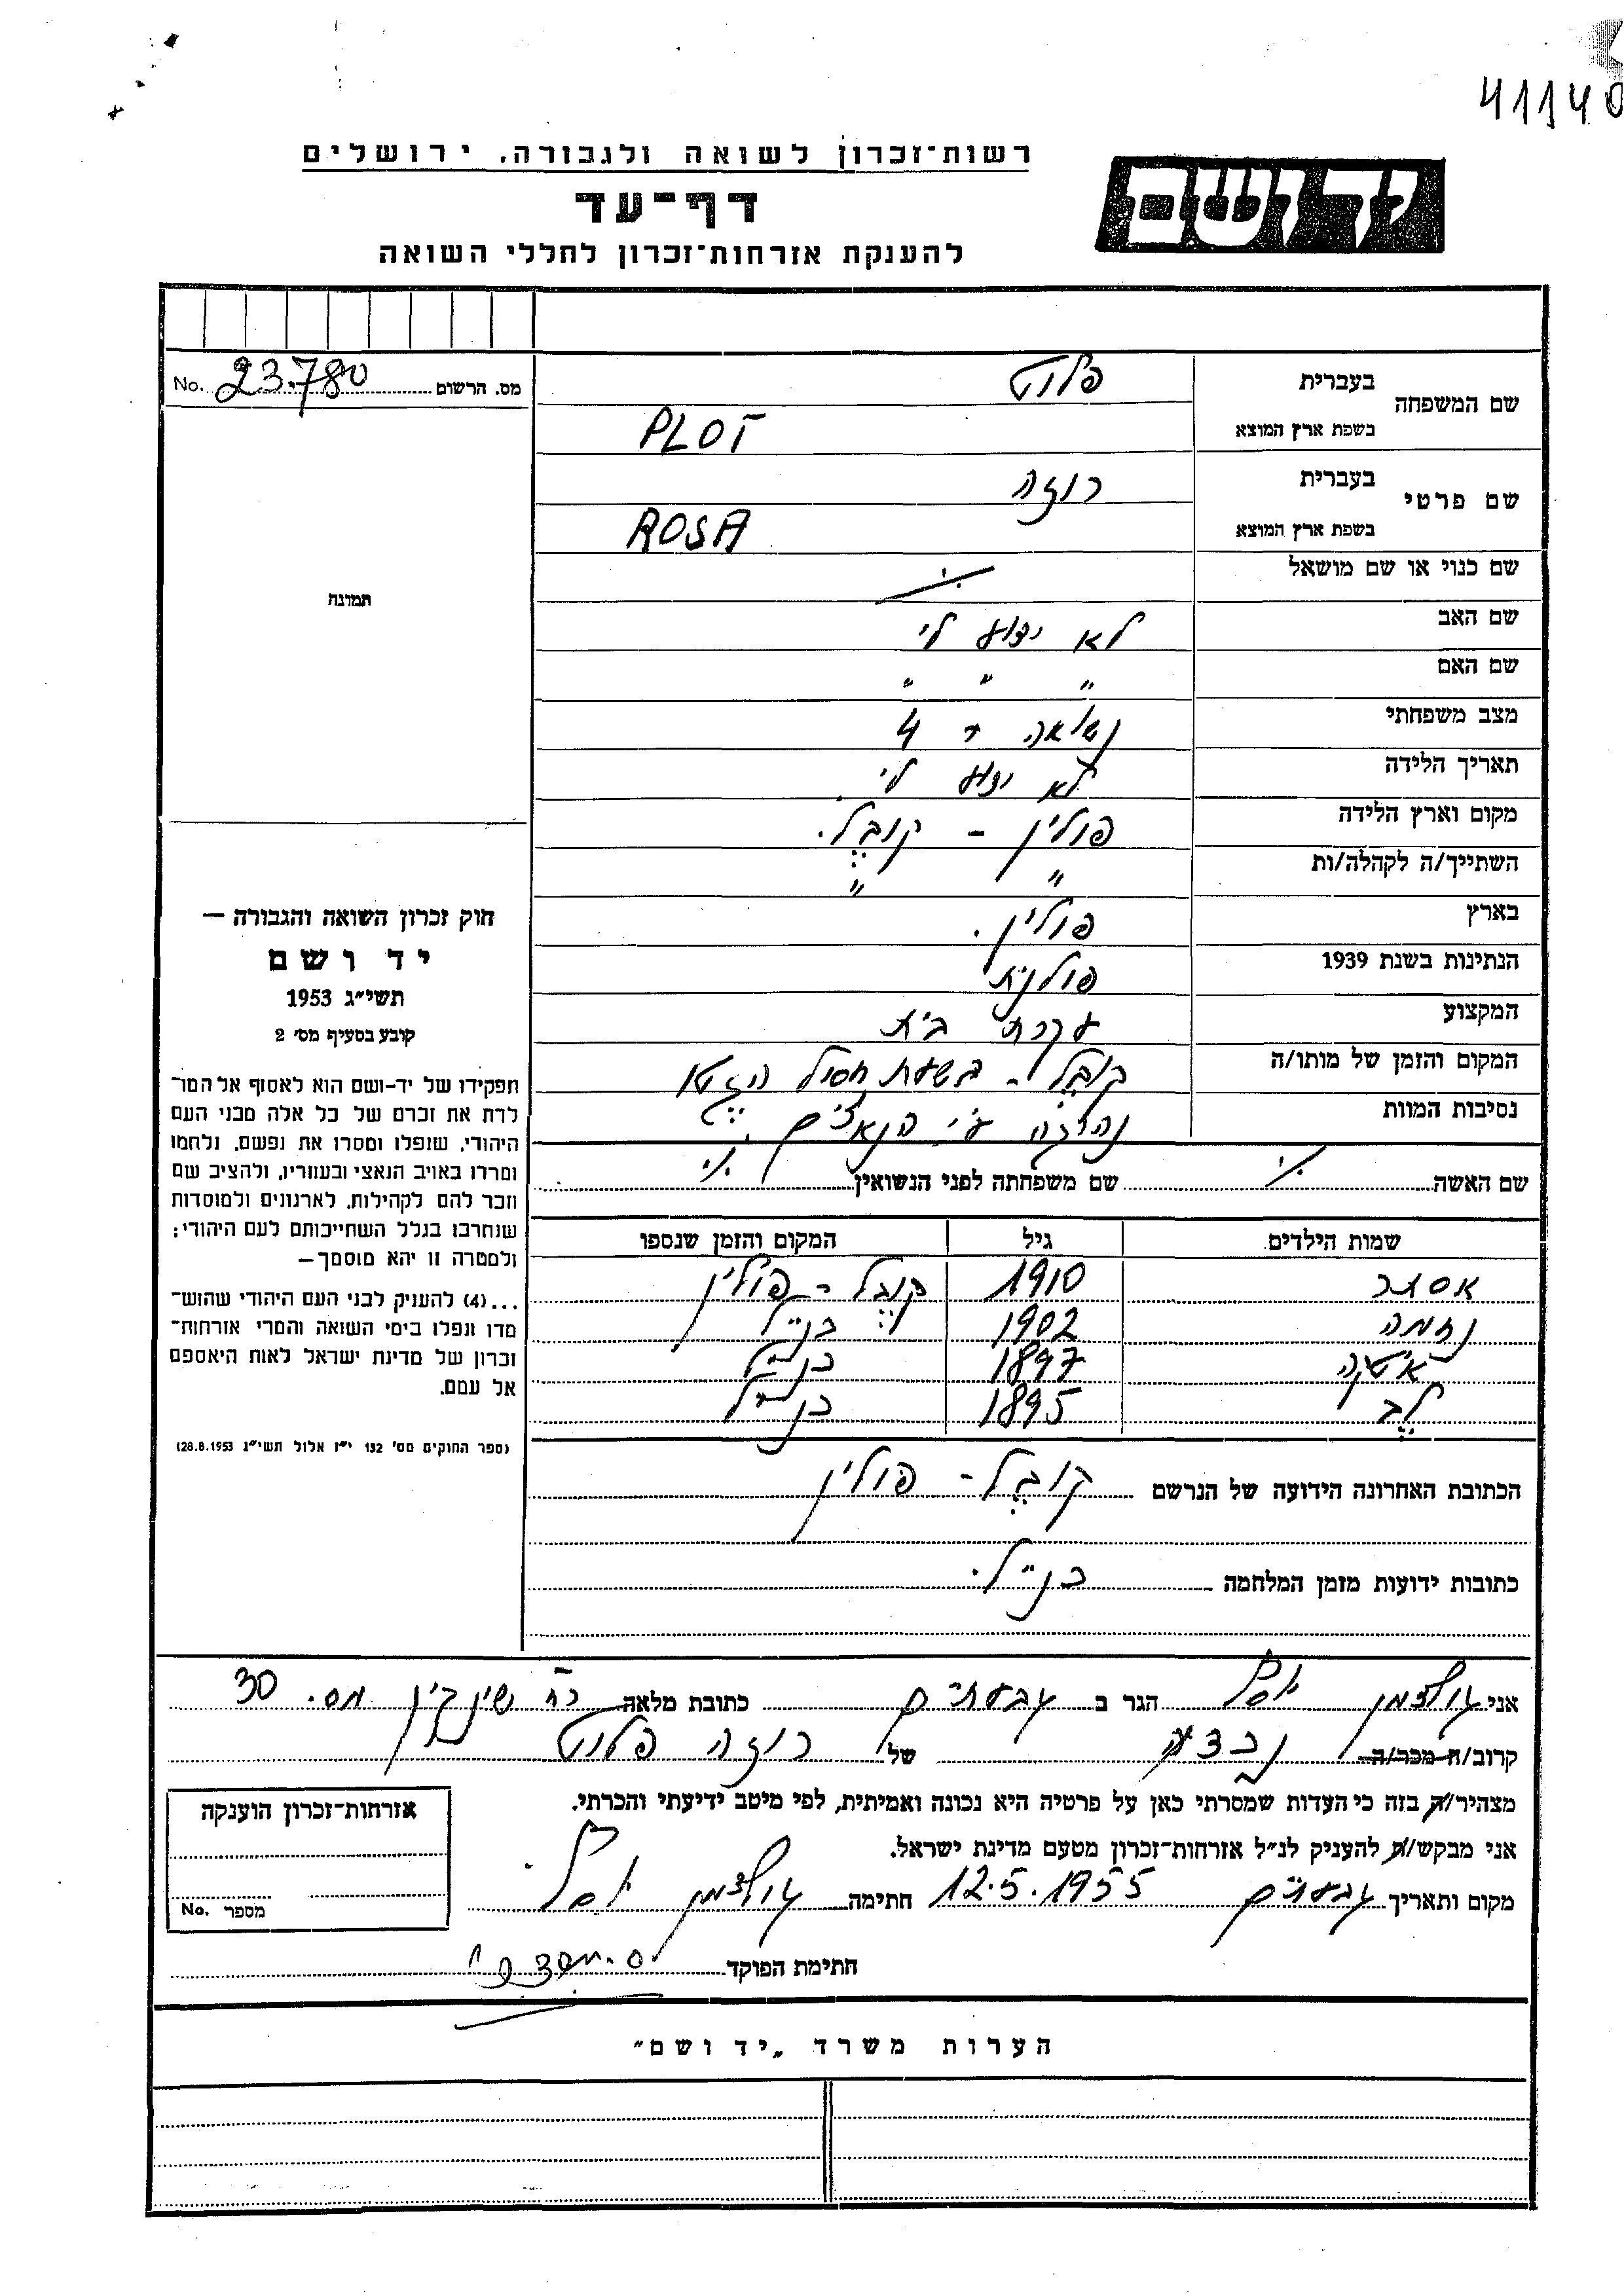 41140
רשות־זכרון לשואה ולגבורה, ירושלים
יד ושם
דף־עד
להענקת אזרחות־זכרון לחללי השואה
No. 23.780 מס. הרשום
תמונה
שם המשפחה
בעברית פלוט
בשפת ארץ המוצא PLOT
שם פרטי
בעברית רוזה
בשפת ארץ המוצא ROSA
שם כנוי או שם מושאל ./.
שם האב לא ידוע לי
שם האם " " "
מצב משפחתי נשואה + 4
תאריך הלידה לא ידוע לי.
מקום וארץ הלידה פולין - קובל.
השתייך/ה לקהלה/ות " "
בארץ פולין.
הנתינות בשנת 1939 פולנית
המקצוע עקרת בית
המקום והזמן של מותו/ה קובל - בשעת חסול הגטו
נסיבות המוות נהרגה ע"י הנאצים
שם האשה ./. שם משפחתה לפני הנשואין ./.
שמות הילדים גיל המקום והזמן שנספו
אסתר 1910 קובל - פולין
נחמה 1902 כנ"ל
איטקה 1897 כנ"ל
לב 1895 כנ"ל
הכתובת האחרונה הידועה של הנרשם קובל - פולין
כתובות ידועות מזמן המלחמה כנ"ל.
חוק זכרון השואה והגבורה —
יד ושם
תשי״ג 1953
קובע בסעיף מס׳ 2
תפקידו של יד-ושם הוא לאסוף אל המו־
לדת את זכרם של כל אלה מבני העם
היהודי, שנפלו ומסרו את נפשם, נלחמו
ומרדו באויב הנאצי ובעוזריו, ולהציב שם
וזכר להם לקהילות, לארגונים ולמוסדות
שנחרבו בגלל השתייכותם לעם היהודי;
ולמטרה זו יהא מוסמך—
...(4) להעניק לבני העם היהודי שהוש־
מדו ונפלו בימי השואה והמרי אזרחות־
זכרון של מדינת ישראל לאות היאספם
אל עמם.
(ספר החוקים מס׳ 132 י״ז אלול תשי״ג 28.8.1953)
אני הגר ב גבעתיים כתובת מלאה רח' שינקין מס. 30
קרוב/ה מכר/ה של רוזה פלוט
מצהיר/ה בזה כי העדות שמסרתי כאן על פרטיה היא נכונה ואמיתית, לפי מיטב ידיעתי והכרתי.
אני מבקש/ת להעניק לנ״ל אזרחות־זכרון מטעם מדינת ישראל.
מקום ותאריך גבעתיים 12.5.1955 חתימה
חתימת הפוקד
אזרחות־זכרון הוענקה
מספר No.
הערות משרד „יד ושם״